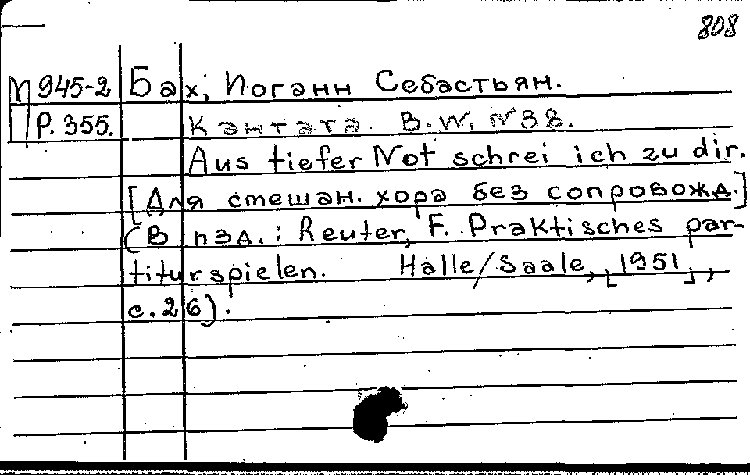 808
М 945-2 Бах, Иоганн Себастьян.
Р. 355. Кантата. B.W. N 38.
Aus tiefer Not schrei ich zu dir.
[Для смешан. хора без сопровожд.]
(В изд.: Reuter, F. Praktisches par-
titurspielen. Halle/Saale, [1951],
с. 26).